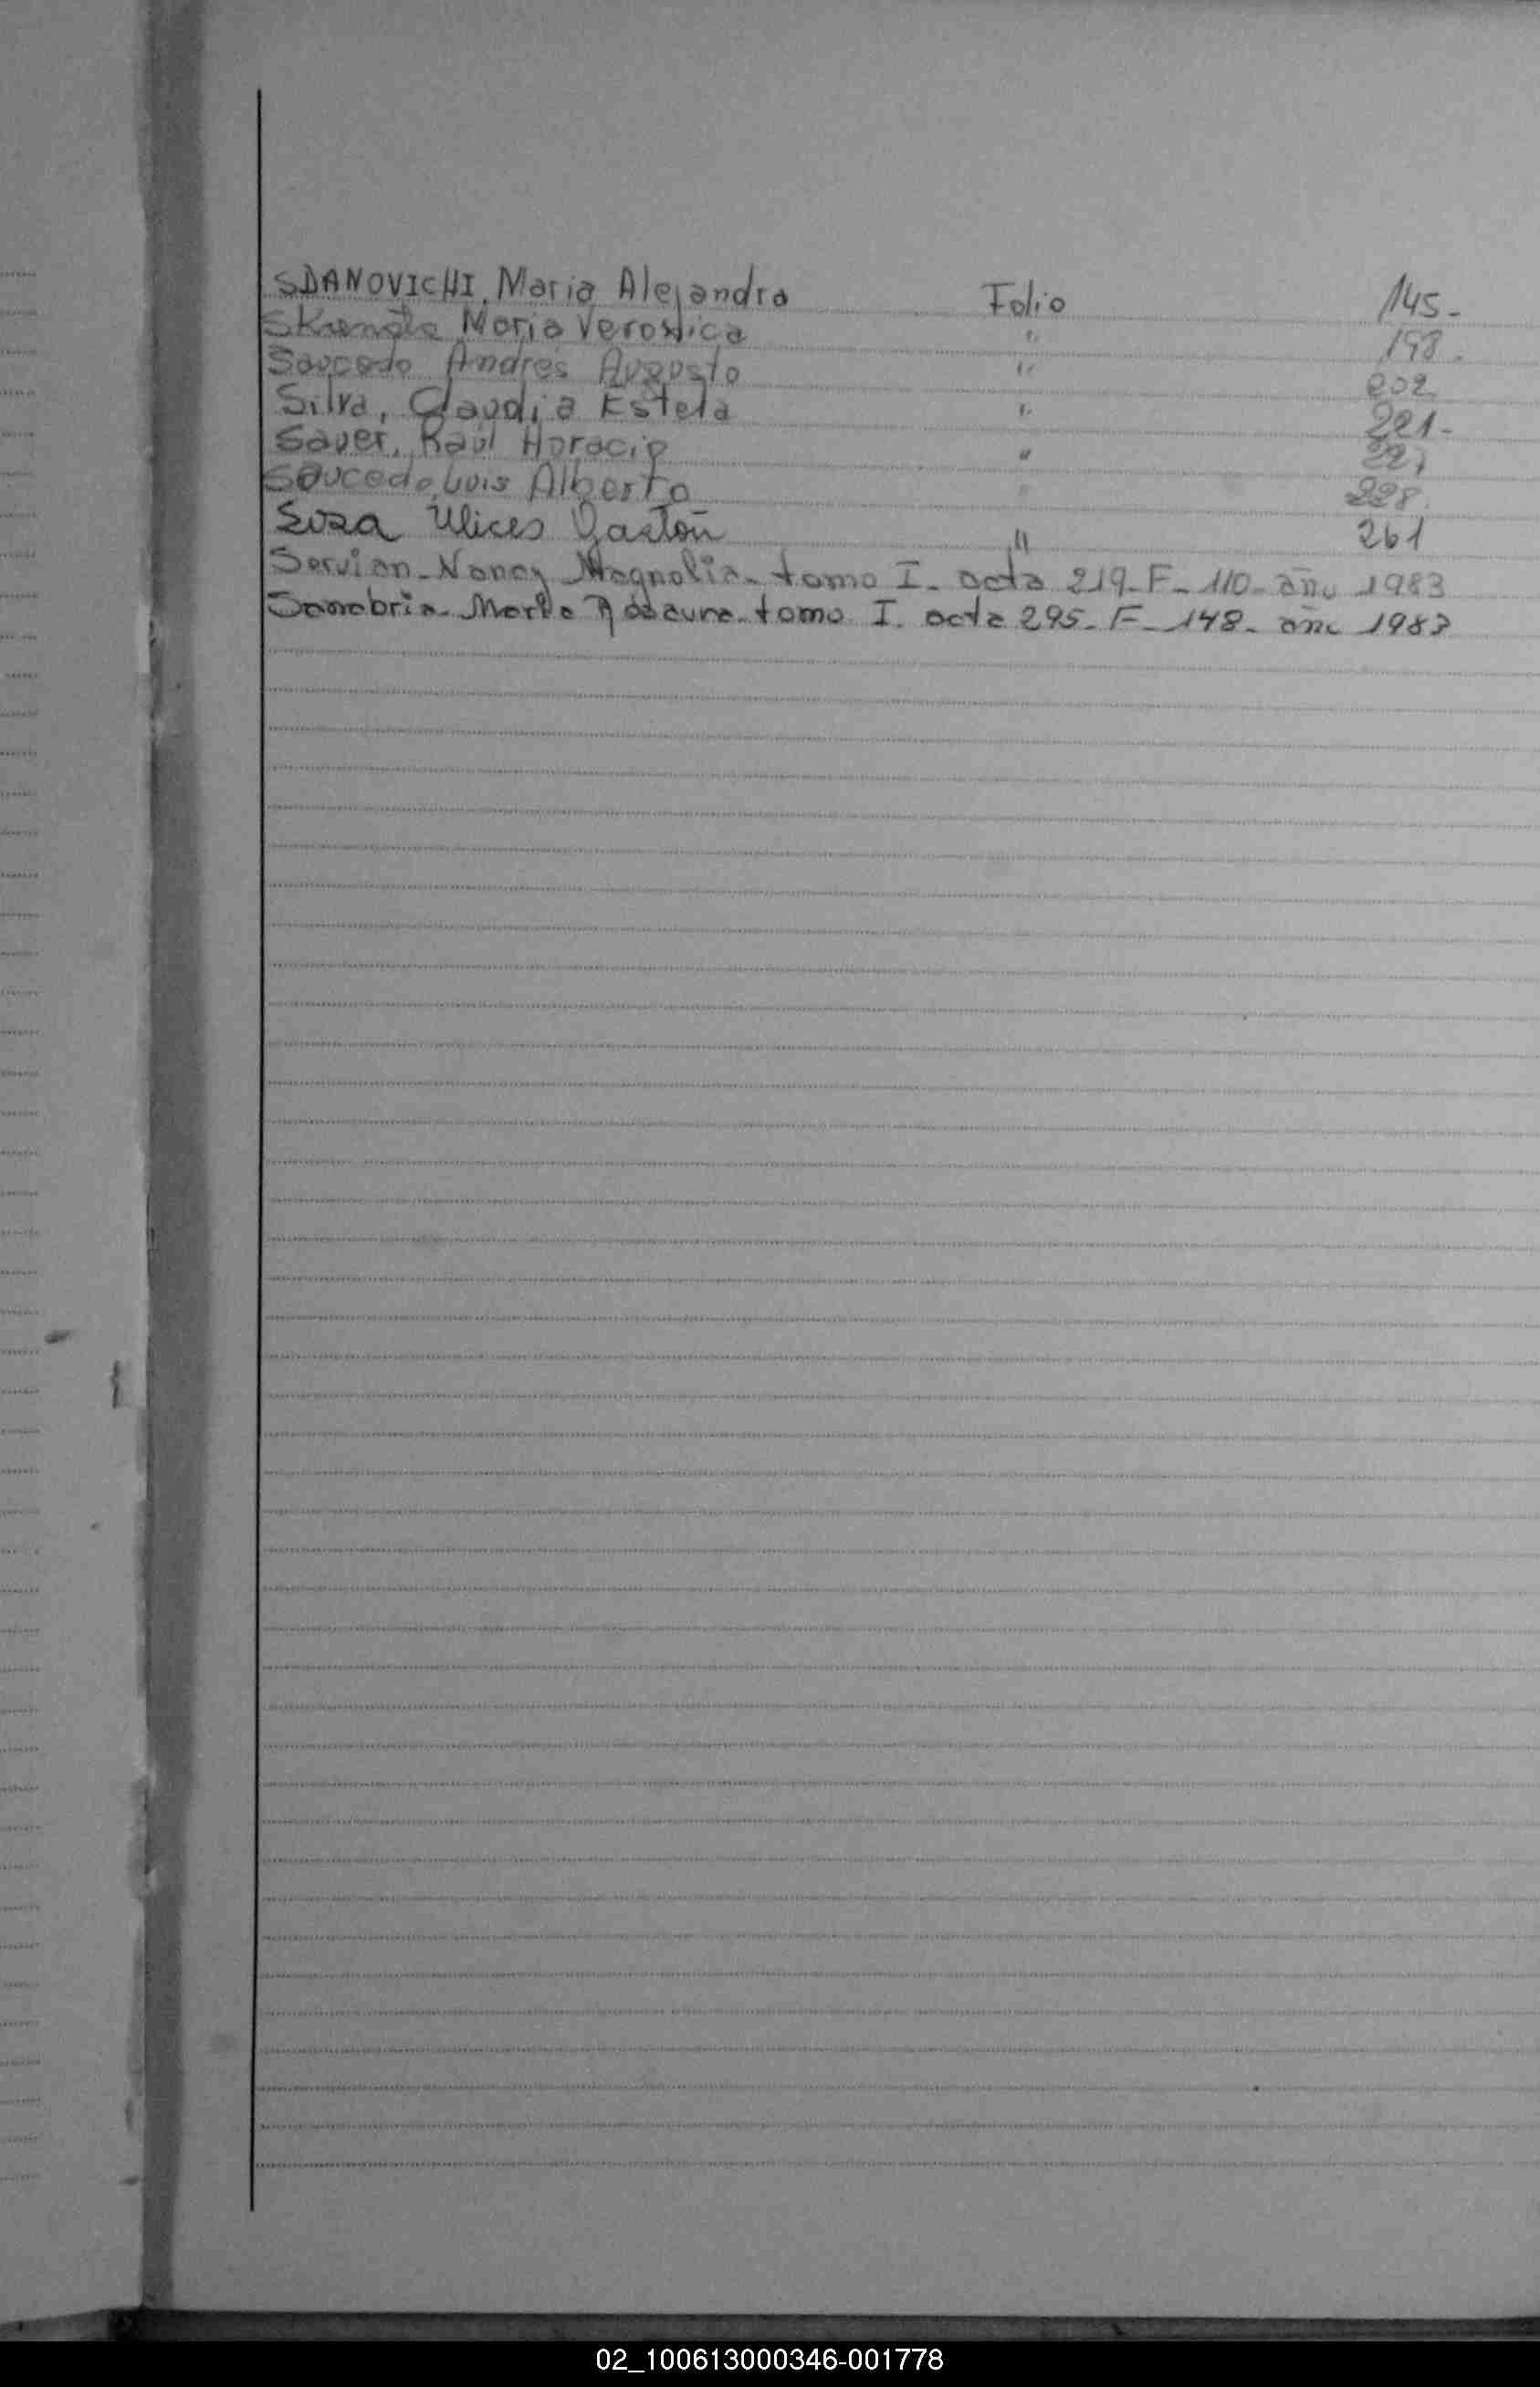 SDANOVICHI, Maria Alejandra Folio 145-
Maria Veronica " 198.
Saucedo Andrés Augusto " 202
Silva, Claudia Estela " 221-
Sauer, Raúl Horacio "
Saucedo, Luis Alberto " 228.
Sosa Ulices Gastón " 261
Servian- Nancy Magnolia- tomo I- acta 219- F- 110- año 1983
Sanabria- Marta Rosaura- tomo I. acta 295- F- 148- año 1983
02_100613000346-001778